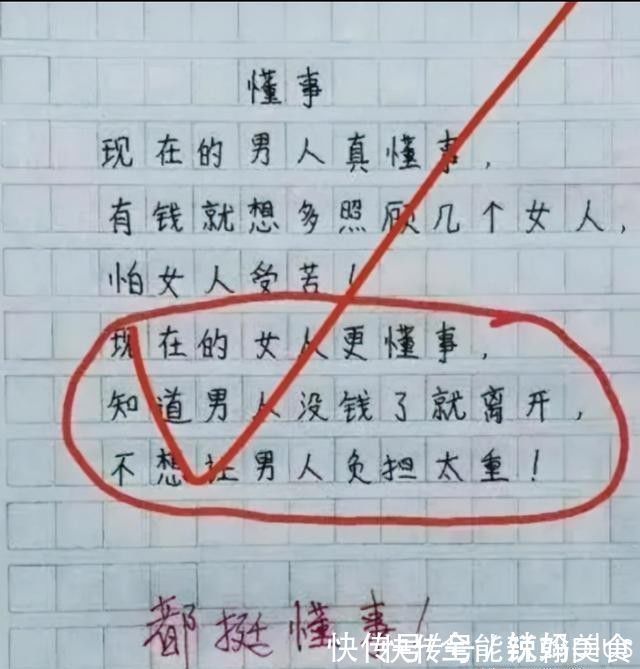 懂事
现在的男人真懂事，
有钱就想多照顾几个女人，
怕女人受苦！
现在的女人更懂事，
知道男人没钱了就离开，
不想男人负担太重！
都挺懂事！
快传号 美食